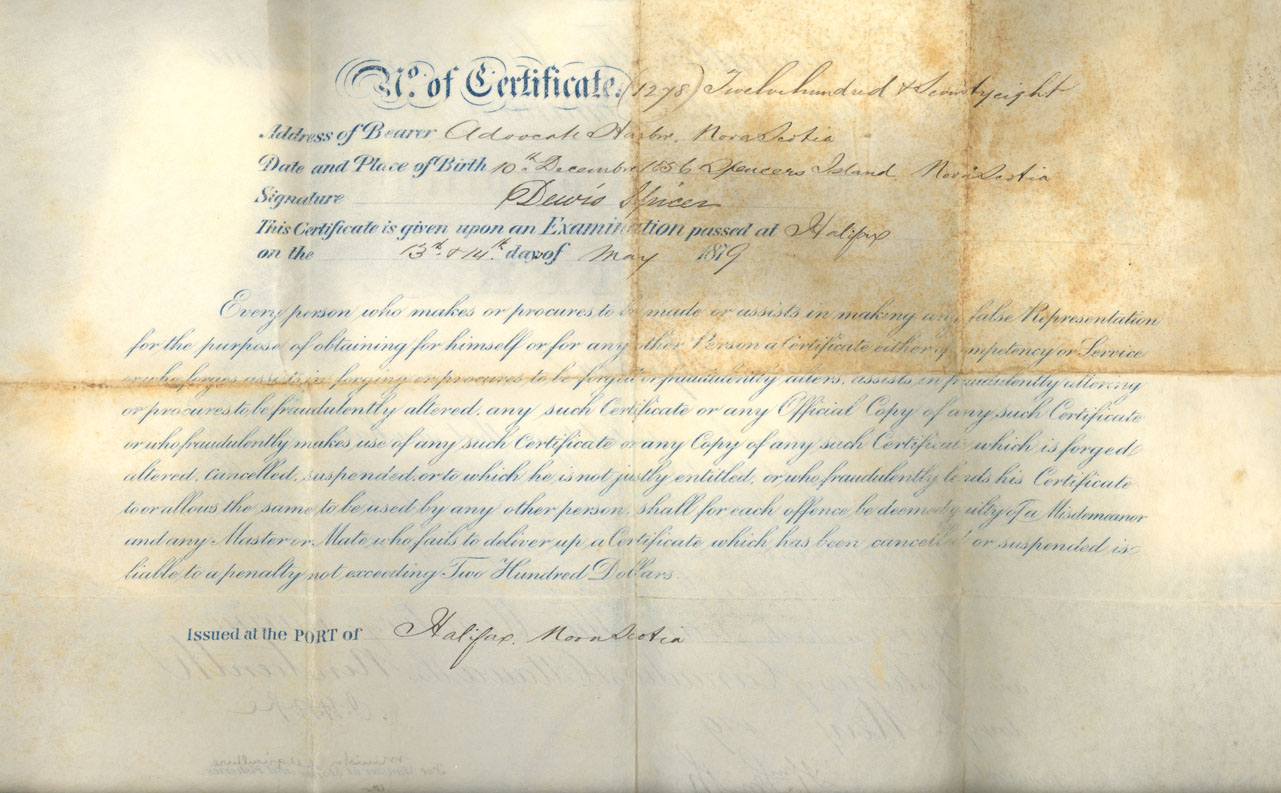 No. of Certificate. (1278) Twelvehundred & Seventyeight
Address of Bearer Advocate Harbor, Nova Scotia
Date and Place of Birth 10th December 1856 Spencers Island. Nova Scotia
Signature Dewis Spicer
This Certificate is given upon an Examination passed at Halifax
on the 13th & 14th day of May 1879
Every person who makes or procures to be made or assists in making any false Representation
for the purpose of obtaining for himself or for any other Person a Certificate either of Competency or Service
or who forges assists in forging or procures to be forged or fraudulently alters, assists in fraudulently altering
or procures to be fraudulently altered, any such Certificate or any Official Copy of any such Certificate
or who fraudulently makes use of any such Certificate or any Copy of any such Certificate which is forged
altered, cancelled, suspended, or to which he is not justly entitled, or who fraudulently lends his Certificate
to or allows the same to be used by any other person, shall for each offence, be deemed guilty of a Misdemeanor
and any Master or Mate, who fails to deliver up a Certificate which has been cancelled or suspended is
liable to a penalty not exceeding Two Hundred Dollars.
Issued at the PORT of Halifax, Nova Scotia